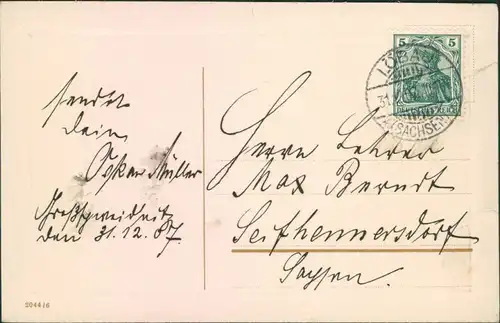 sendet
dein
Oskar Müller
Großschweidnitz
den 31.12.07.
5 5
LÖBAU
31.
(SACHSEN)
Herrn Lehrer
Max Berndt
Seifhennersdorf
Sachsen.
20446